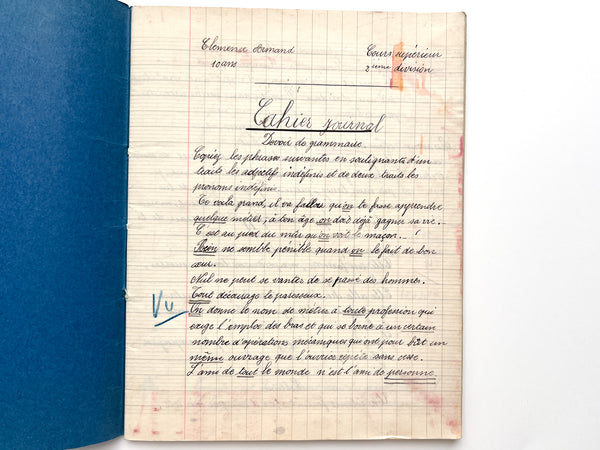 Clemence Armand
Cours supérieur
10 ans
2ieme division
Cahier journal
Devoir de grammaire
Copiez les phrases suivantes en soulignant d'un
traits les adjectifs indéfinis et de deux traits les
pronoms indéfinis.
Te voilà grand, il va falloir qu'on te fasse apprendre
quelque métier, à ton âge on doit déjà gagner sa vie.
C'est au pied du mur qu'on voit le maçon.
Rien ne semble pénible quand on le fait de bon
cœur.
Nul ne peut se vanter de se passé des hommes.
Tout décourage le paresseux.
Vu
On donne le nom de métier à toute profession qui
exige l'emploi des bras et qui se borne à un certain
nombre d'opérations mécaniques qui ont pour but un
même ouvrage que l'ouvrier répète sans cesse.
L'ami de tout le monde n'est l'ami de personne.